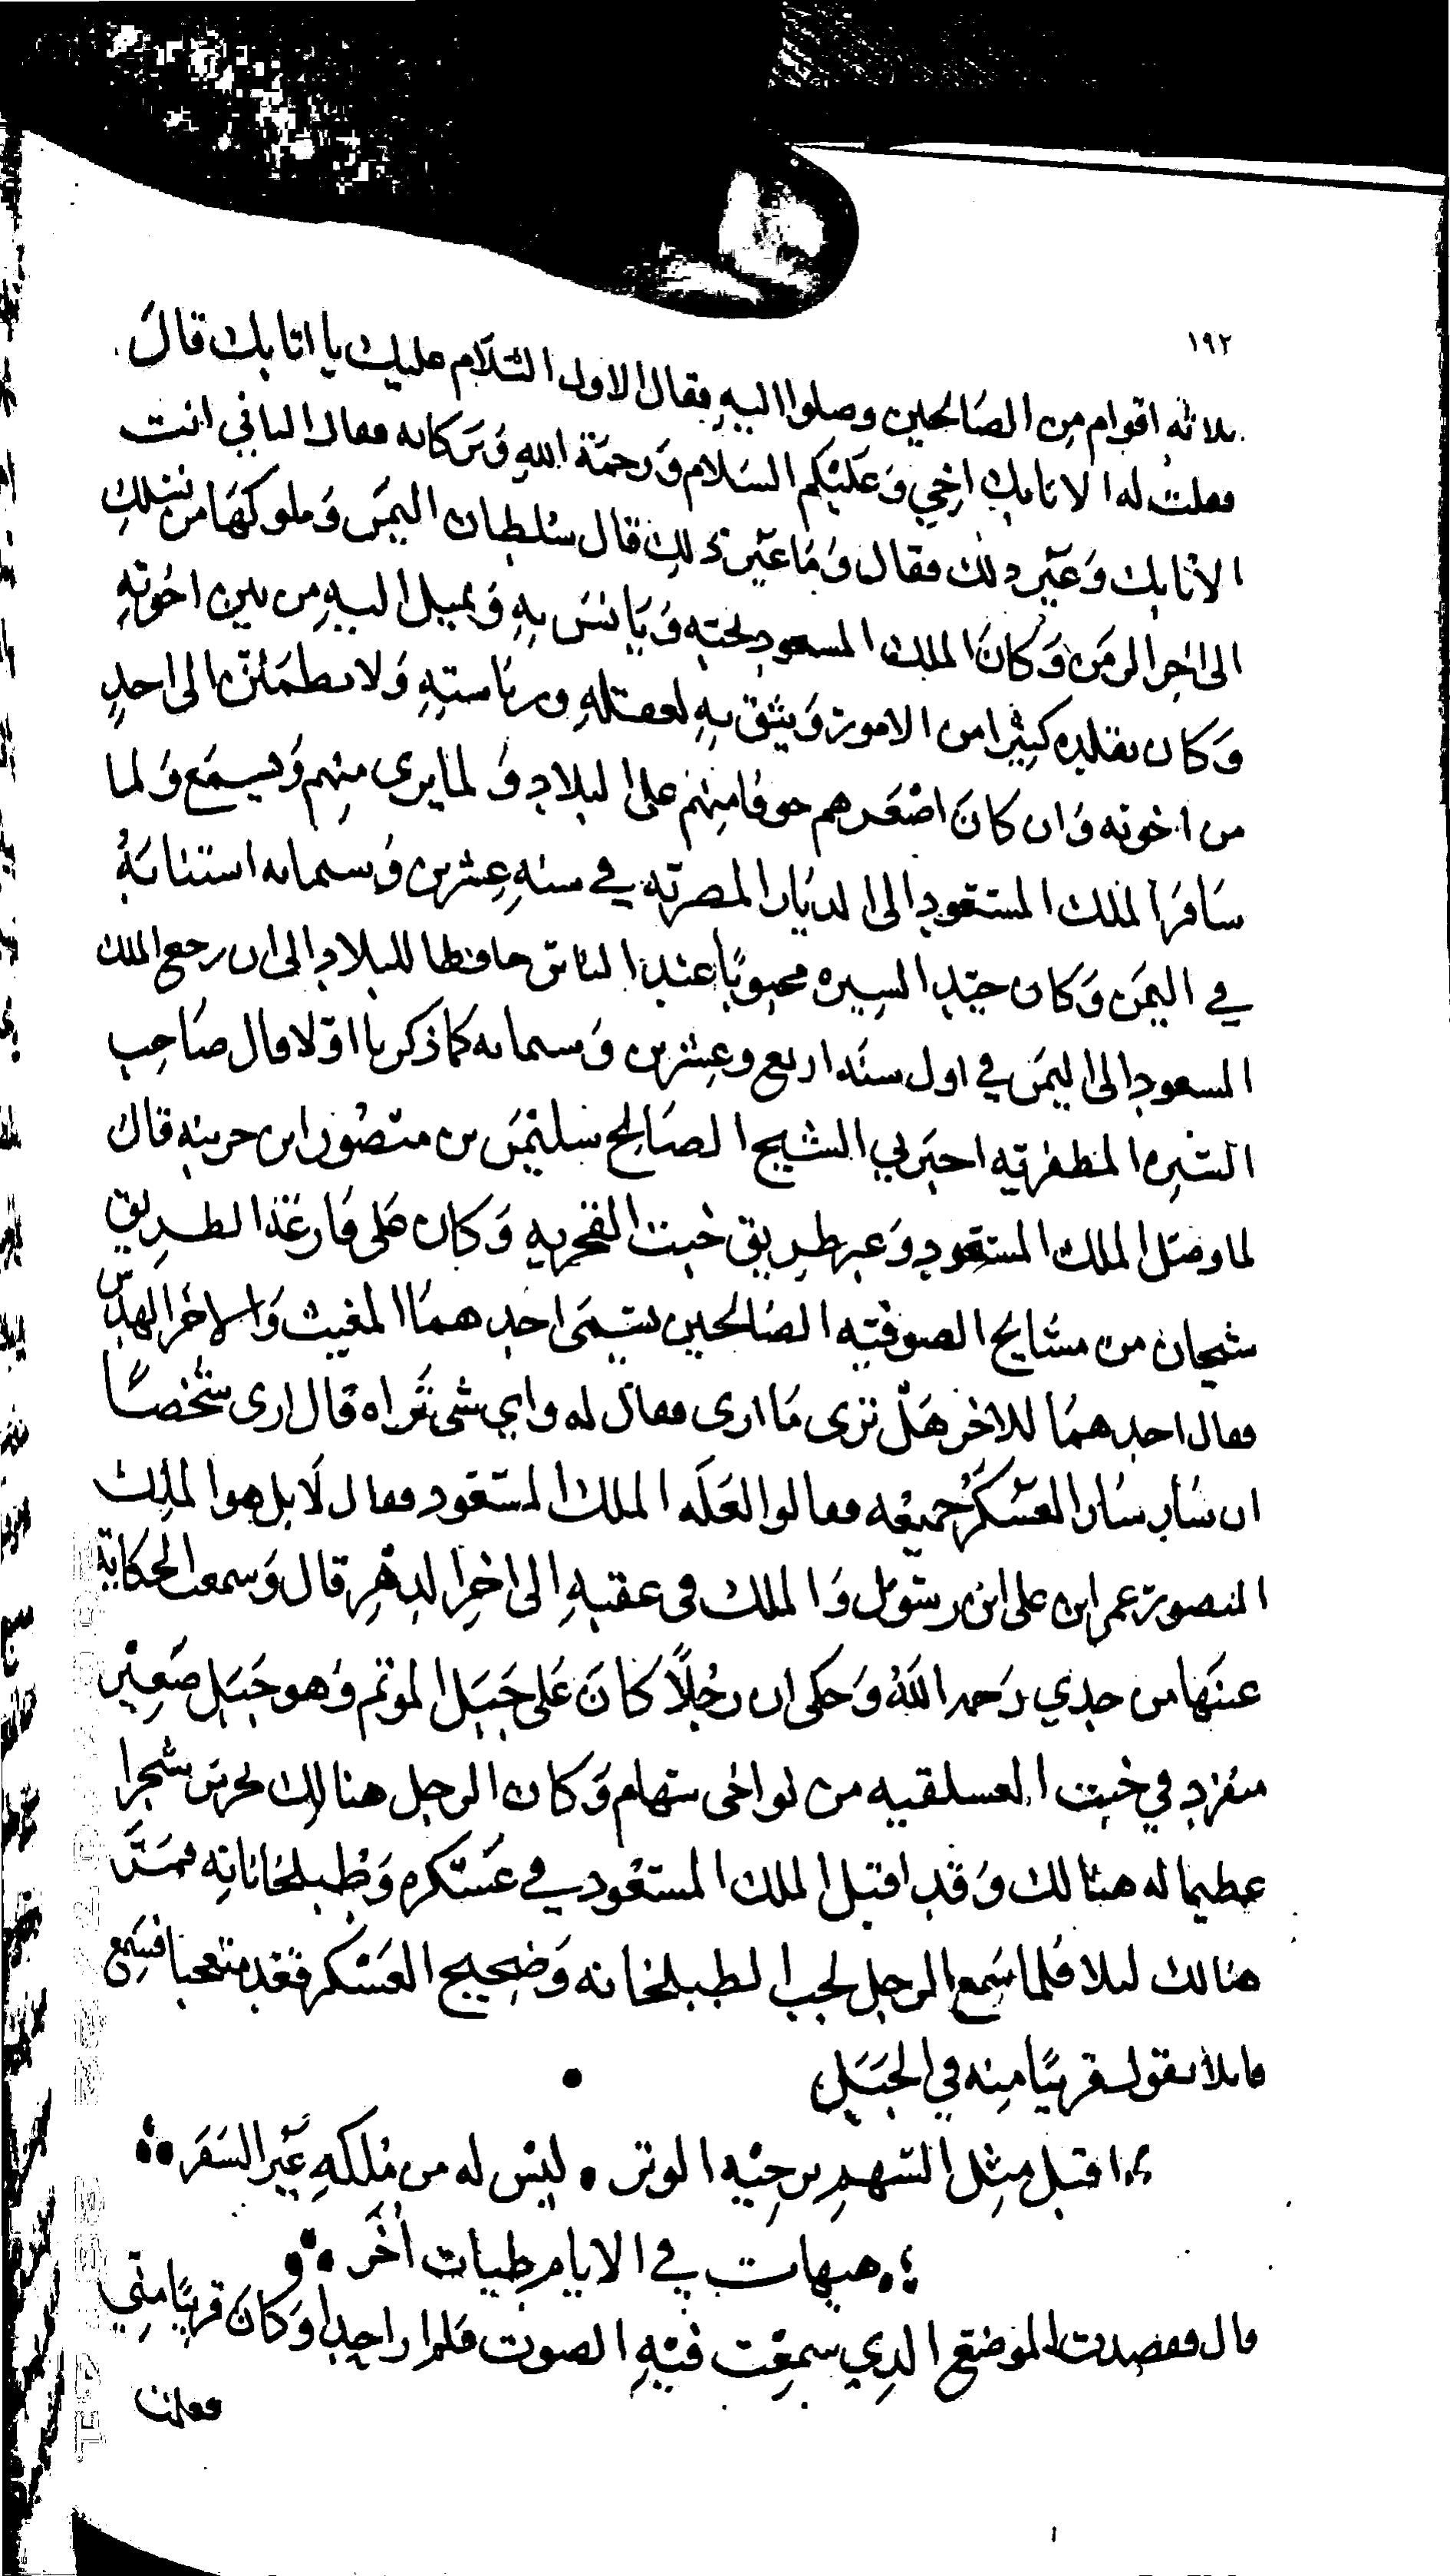 ١٩٢
ثلاثه اقوام من الصَالحين وصلوا اليهِ فقال الاول السَّلام عليك يا اتابك قالَ
فقلت له الاتابك اخي وَعَليْكم السَلام وَرحمَة اللهِ وَبَركاته فقال الثاني انت
الاتابك وَغيْر ذلك فقال وَمَا غيْر ذلك قال سُلطان اليمَن وَملوكهَا من نسْلك
الى اخِر الزمَن وَكانَ الملك المسعود يحبّه وَيَانسَ بهِ وَيميل اليهِ من بين اخوتهِ
وَكان يقلده كثِيْرا من الامور وَيثق بهِ لعقلهِ ورئاستهِ وَلا يطمَئنّ الى احدٍ
من اخوته وَان كانَ اصْغَرهم خوفًا منهم على البلاد وَ لما يرى منهم وَيسمَع وَلما
سَافرَ الملك المسْعود الى الديَار المصريّه في سنه عِشرين وَستمايه استنابَهُ
في اليمَن وَكان جيّد السِيره محبوبًا عند الناسَ حافظا للبلاد الى ان رجع الملك
المسعود الى اليمَن في اول سنَه اربع وعِشرين وَستمايه كما ذكرنا اوّلا قال صَاحِب
السّيره المظفريّه اخبَرني الشيخ الصَالح سليْمَن بن منصُور ابن حربه قال
لما وصَل الملك المسْعود وَعبر طريق خبت القحريه وَكان على قارعَة الطريق
شيخان من مشايخ الصوفيّه الصَالحين يسَمى احدهمَا المغيث وَالاخر الهدش
فقال احدهمَا للاخر هَلْ ترى مَا ارى فقال له واي شى تَراه قال ارى شخصًا
ان سَار سَار العَسْكرُ جميعُه فقالوا لعَلّه الملك المسْعود فقال لَا بل هو الملك
المنصور عمر ابن على ابن رسُول وَالملك فى عقبهِ الى اخِر الدهْر قال وَسمعت الحكاية
عنهَا من جدي رَحمه اللهُ وَحكى ان رجُلًا كانَ عَلى جَبَل الموتم وَهو جَبَل صَغيْر
منفرد في خبت العسلقيه من نواحى سهام وَكان الرجل هنالك يحرسَ شجرا
عظيما له هنالك وَقد اقبل الملك المسعُود في عَسْكره وَطبلخاناتِه فمَرَّ
هنالك ليلا فلما سَمع الرجل لجب الطبلخانه وَضجيج العَسْكر فقعد متعجبا فسَمع
قايلا يقول قريبًا مِنه في الجبَل
اقبل مثل السّهم يزجيْه الوتر • ليسْ له من مُلكهِ غيْر السَفر
هيهات في الايام طيات اُخر
قال فقصدت الموضع الذي سمعْت فيْهِ الصوت فلم ار احدًا وَكانَ قريبًا منّي
فقلت